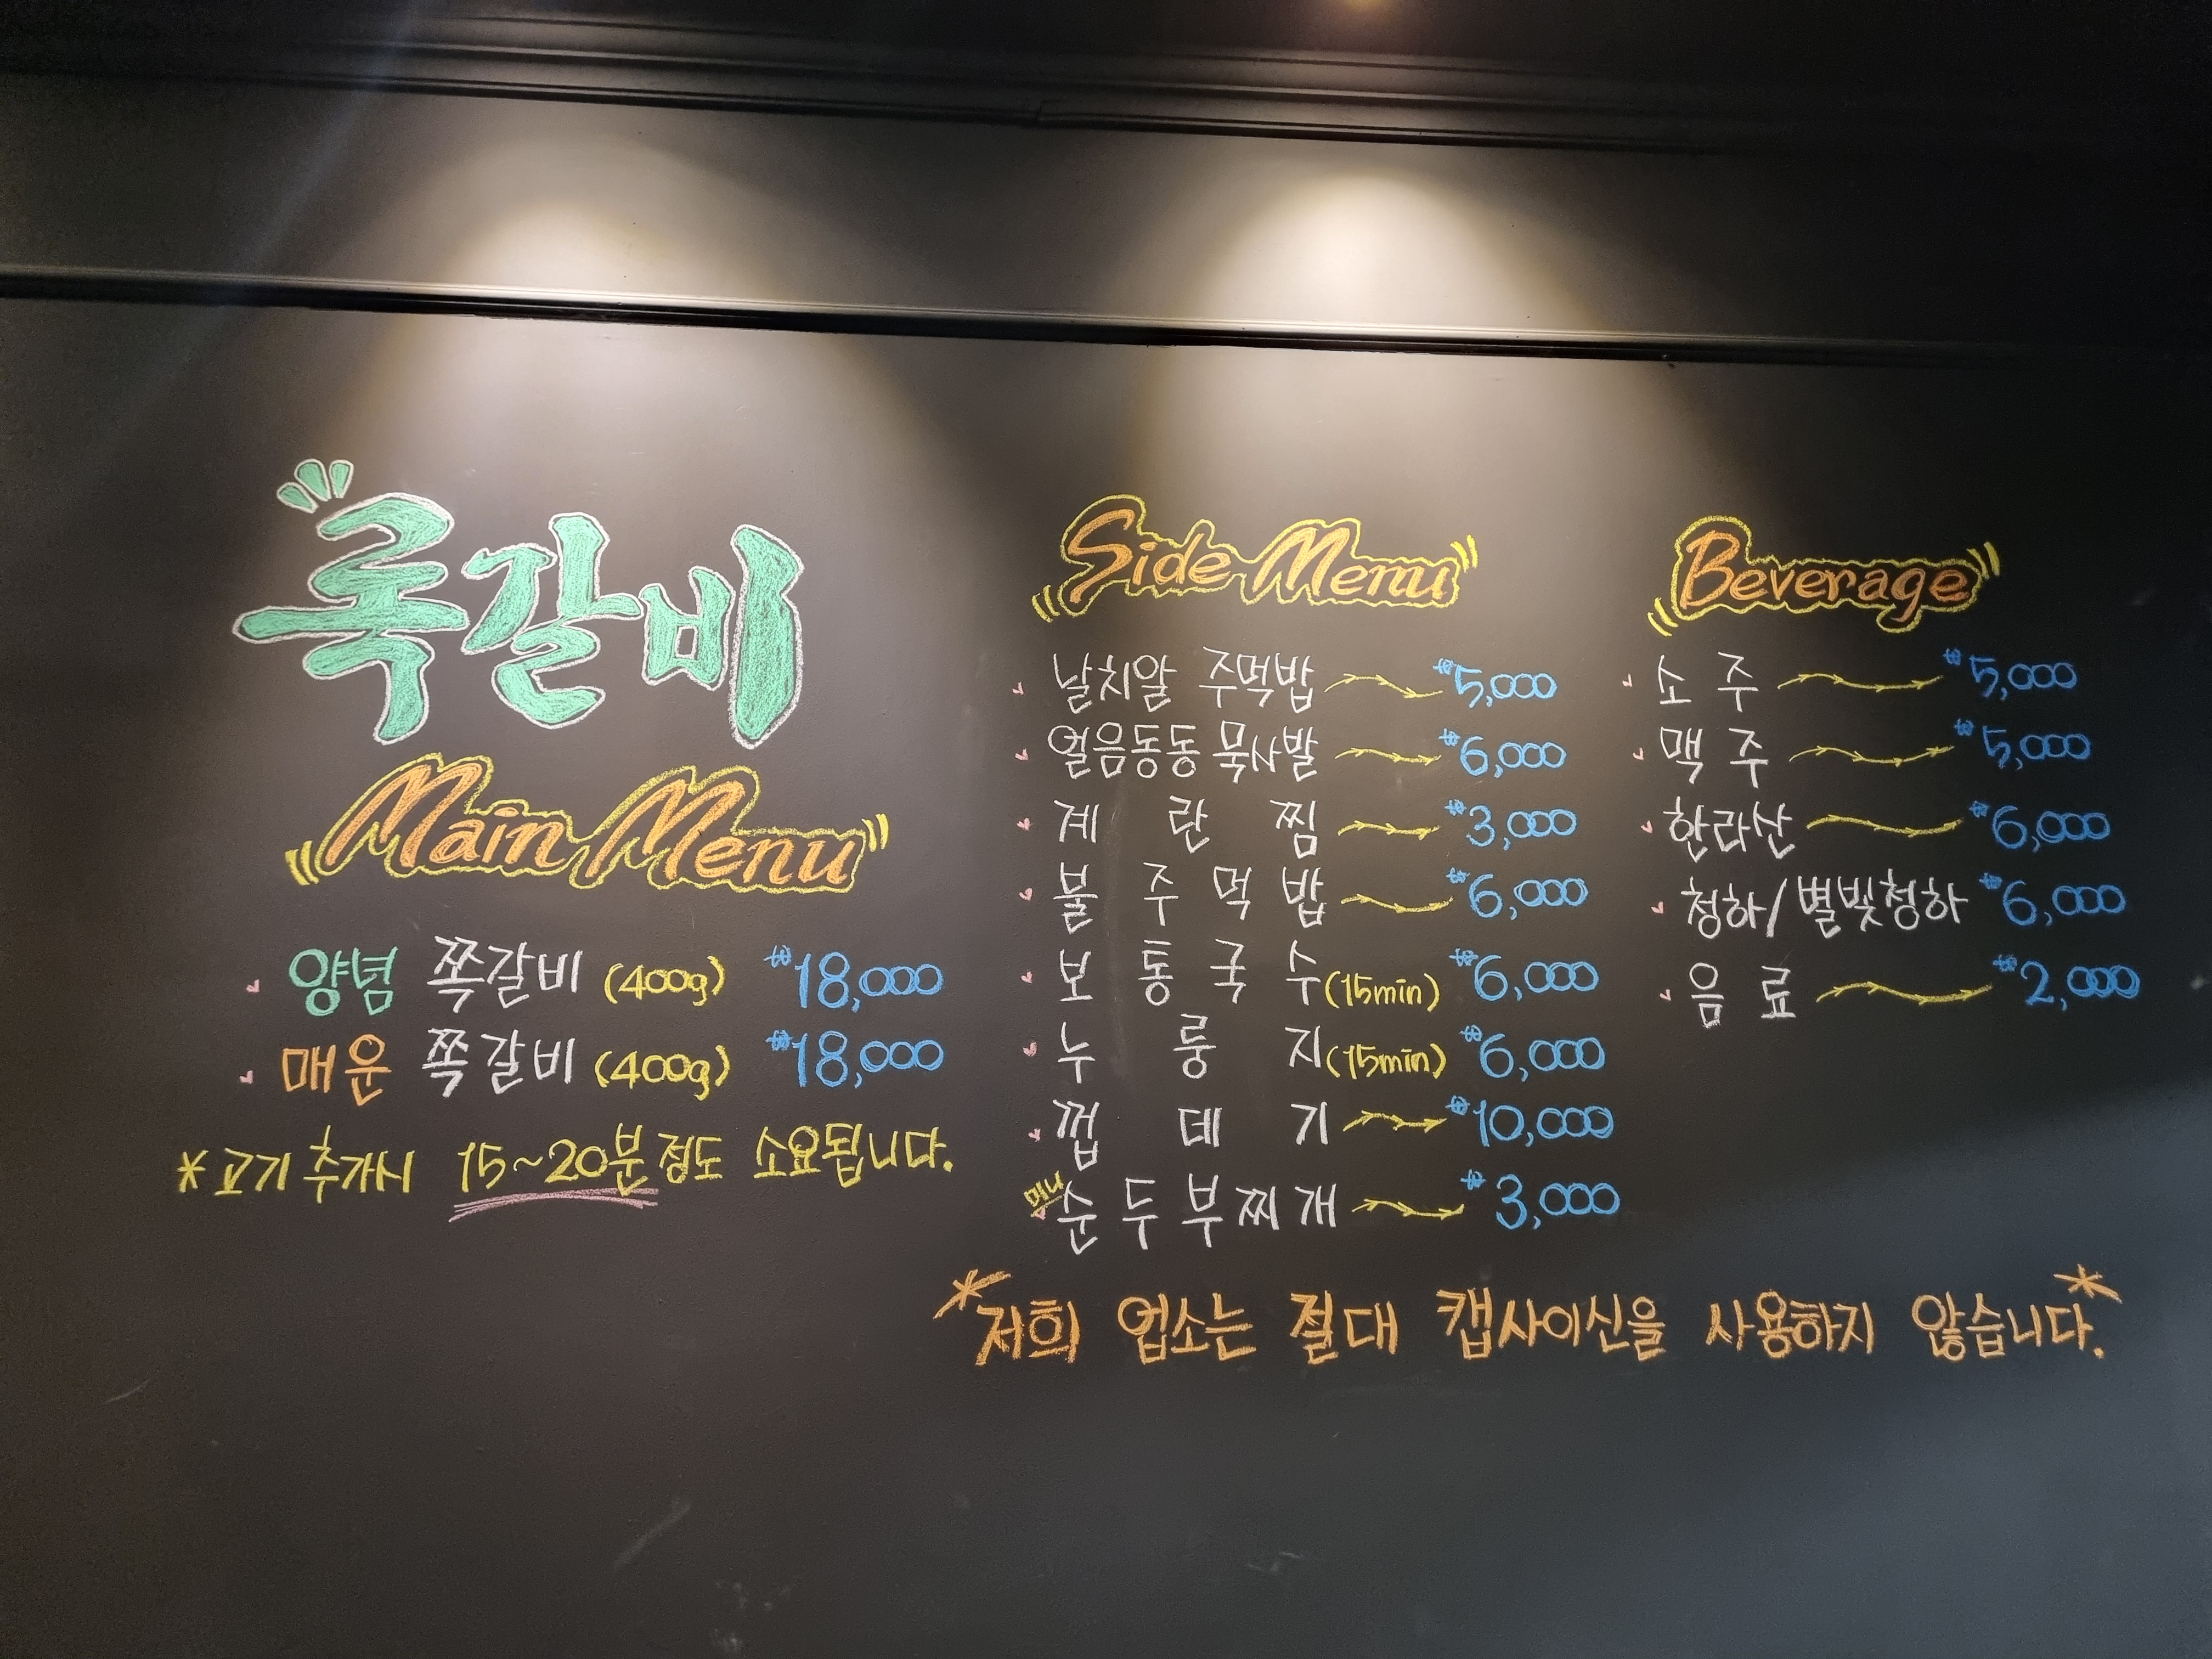 쪽갈비
Main Menu
양념 쪽갈비 (400g) ₩18,000
매운 쪽갈비 (400g) ₩18,000
*고기 추가시 15~20분 정도 소요됩니다.
Side Menu
날치알 주먹밥 ₩5,000
얼음동동 묵사발 ₩6,000
계란찜 ₩3,000
불주먹밥 ₩6,000
보통국수(15min) ₩6,000
누룽지(15min) ₩6,000
껍데기 ₩10,000
미니 순두부찌개 ₩3,000
Beverage
소주 ₩5,000
맥주 ₩5,000
한라산 ₩6,000
청하/별빛청하 ₩6,000
음료 ₩2,000
*저희 업소는 절대 캡사이신을 사용하지 않습니다.*